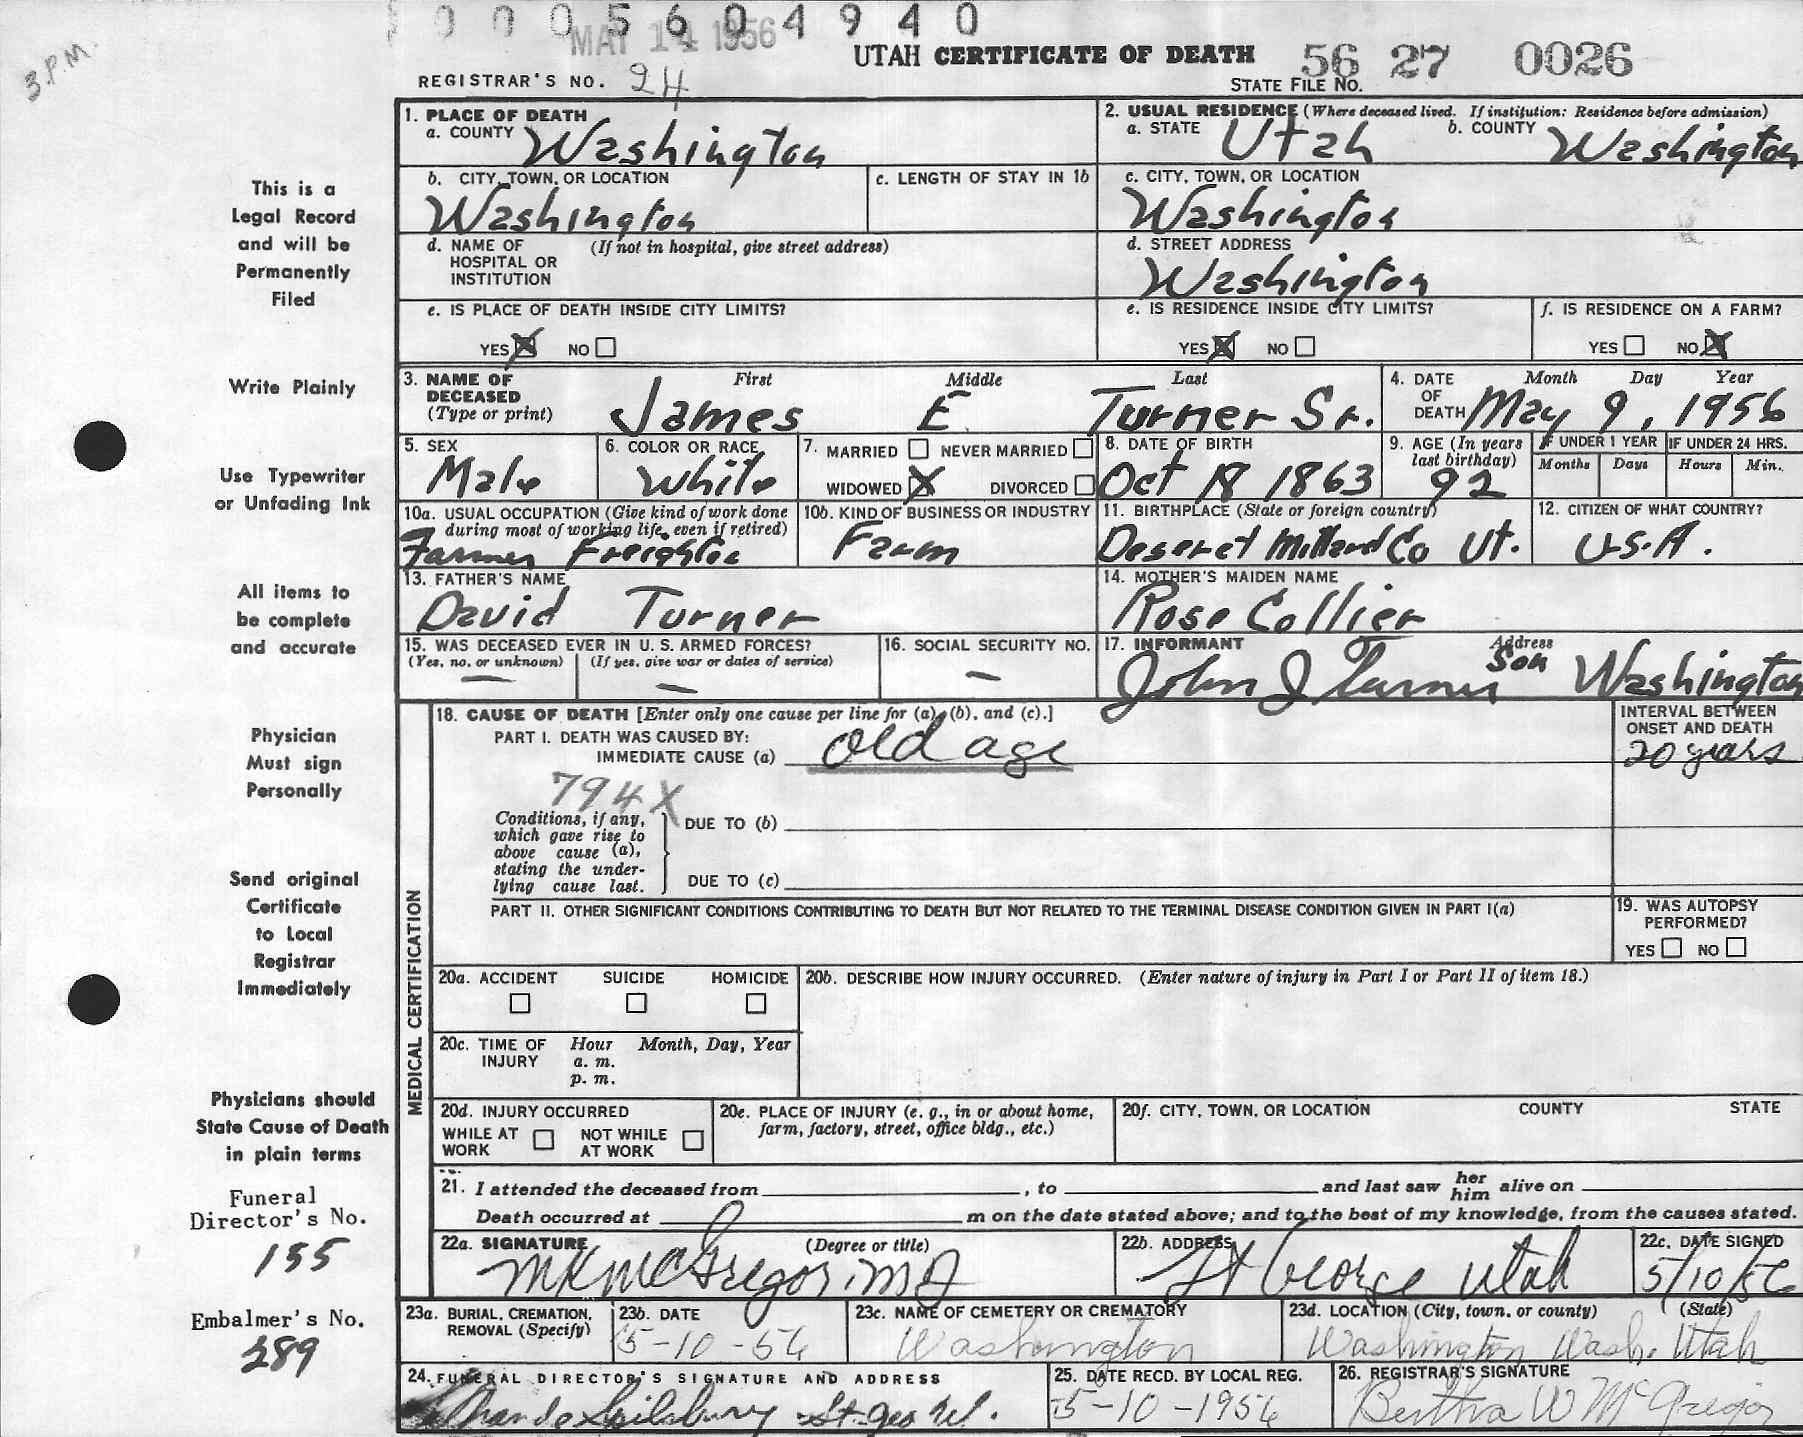 0 0 0 5 6 0 4 9 4 0
MAY 14 1956
3 P.M.
UTAH CERTIFICATE OF DEATH 56 27 0026
REGISTRAR'S NO. 24 STATE FILE NO.
This is a
Legal Record
and will be
Permanently
Filed
Write Plainly
Use Typewriter
or Unfading Ink
All items to
be complete
and accurate
Physician
Must sign
Personally
Send original
Certificate
to Local
Registrar
Immediately
Physicians should
State Cause of Death
in plain terms
Funeral
Director's No.
155
Embalmer's No.
289
1. PLACE OF DEATH
a. COUNTY Washington
2. USUAL RESIDENCE (Where deceased lived. If institution: Residence before admission)
a. STATE Utah b. COUNTY Washington
b. CITY, TOWN, OR LOCATION
Washington
c. LENGTH OF STAY IN 1b
c. CITY, TOWN, OR LOCATION
Washington
d. NAME OF (If not in hospital, give street address)
HOSPITAL OR
INSTITUTION
d. STREET ADDRESS
Washington
e. IS PLACE OF DEATH INSIDE CITY LIMITS?
YES X NO
e. IS RESIDENCE INSIDE CITY LIMITS?
YES X NO
f. IS RESIDENCE ON A FARM?
YES NO X
3. NAME OF First Middle Last
DECEASED
(Type or print) James E Turner Sr.
4. DATE Month Day Year
OF
DEATH May 9, 1956
5. SEX
Male
6. COLOR OR RACE
White
7. MARRIED NEVER MARRIED
WIDOWED X DIVORCED
8. DATE OF BIRTH
Oct 18 1863
9. AGE (In years
last birthday)
92
IF UNDER 1 YEAR IF UNDER 24 HRS.
Months Days Hours Min.
10a. USUAL OCCUPATION (Give kind of work done
during most of working life, even if retired)
Farmer Freighter
10b. KIND OF BUSINESS OR INDUSTRY
Farm
11. BIRTHPLACE (State or foreign country)
Deseret Millard Co Ut.
12. CITIZEN OF WHAT COUNTRY?
U.S.A.
13. FATHER'S NAME
David Turner
14. MOTHER'S MAIDEN NAME
Rose Collier
15. WAS DECEASED EVER IN U. S. ARMED FORCES?
(Yes, no, or unknown) (If yes, give war or dates of service)
— —
16. SOCIAL SECURITY NO.
—
17. INFORMANT Address
John J Turner Son Washington
MEDICAL CERTIFICATION
18. CAUSE OF DEATH [Enter only one cause per line for (a), (b), and (c).]
PART I. DEATH WAS CAUSED BY:
IMMEDIATE CAUSE (a) old age
INTERVAL BETWEEN
ONSET AND DEATH
20 years
794X
Conditions, if any,
which gave rise to
above cause (a),
stating the under-
lying cause last.
DUE TO (b)
DUE TO (c)
PART II. OTHER SIGNIFICANT CONDITIONS CONTRIBUTING TO DEATH BUT NOT RELATED TO THE TERMINAL DISEASE CONDITION GIVEN IN PART I(a)
19. WAS AUTOPSY
PERFORMED?
YES NO
20a. ACCIDENT SUICIDE HOMICIDE
20b. DESCRIBE HOW INJURY OCCURRED. (Enter nature of injury in Part I or Part II of item 18.)
20c. TIME OF Hour Month, Day, Year
INJURY a. m.
p. m.
20d. INJURY OCCURRED
WHILE AT NOT WHILE
WORK AT WORK
20e. PLACE OF INJURY (e. g., in or about home,
farm, factory, street, office bldg., etc.)
20f. CITY, TOWN, OR LOCATION COUNTY STATE
21. I attended the deceased from , to and last saw her him alive on
Death occurred at m on the date stated above; and to the best of my knowledge, from the causes stated.
22a. SIGNATURE (Degree or title)
MK McGregor, MD
22b. ADDRESS
St George Utah
22c. DATE SIGNED
5/10/56
23a. BURIAL, CREMATION,
REMOVAL (Specify)
23b. DATE
5-10-56
23c. NAME OF CEMETERY OR CREMATORY
Washington
23d. LOCATION (City, town, or county) (State)
Washington Wash. Utah
24. FUNERAL DIRECTOR'S SIGNATURE AND ADDRESS
St. Geo Ut.
25. DATE RECD. BY LOCAL REG.
5-10-1956
26. REGISTRAR'S SIGNATURE
Bertha W McGregor